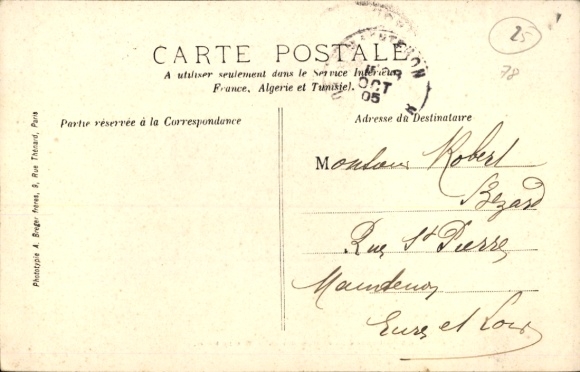 CARTE POSTALE
A utiliser seulement dans le Service Intérieur
France, Algerie et Tunisie).
25
78
OCT
05
Partie réservée à la Correspondance
Adresse du Destinataire
Monsieur Robert
Bezard
Rue St Pierre
Maintenon
Eure et Loir
Phototypie A. Breger frères, 9, Rue Thénard, Paris